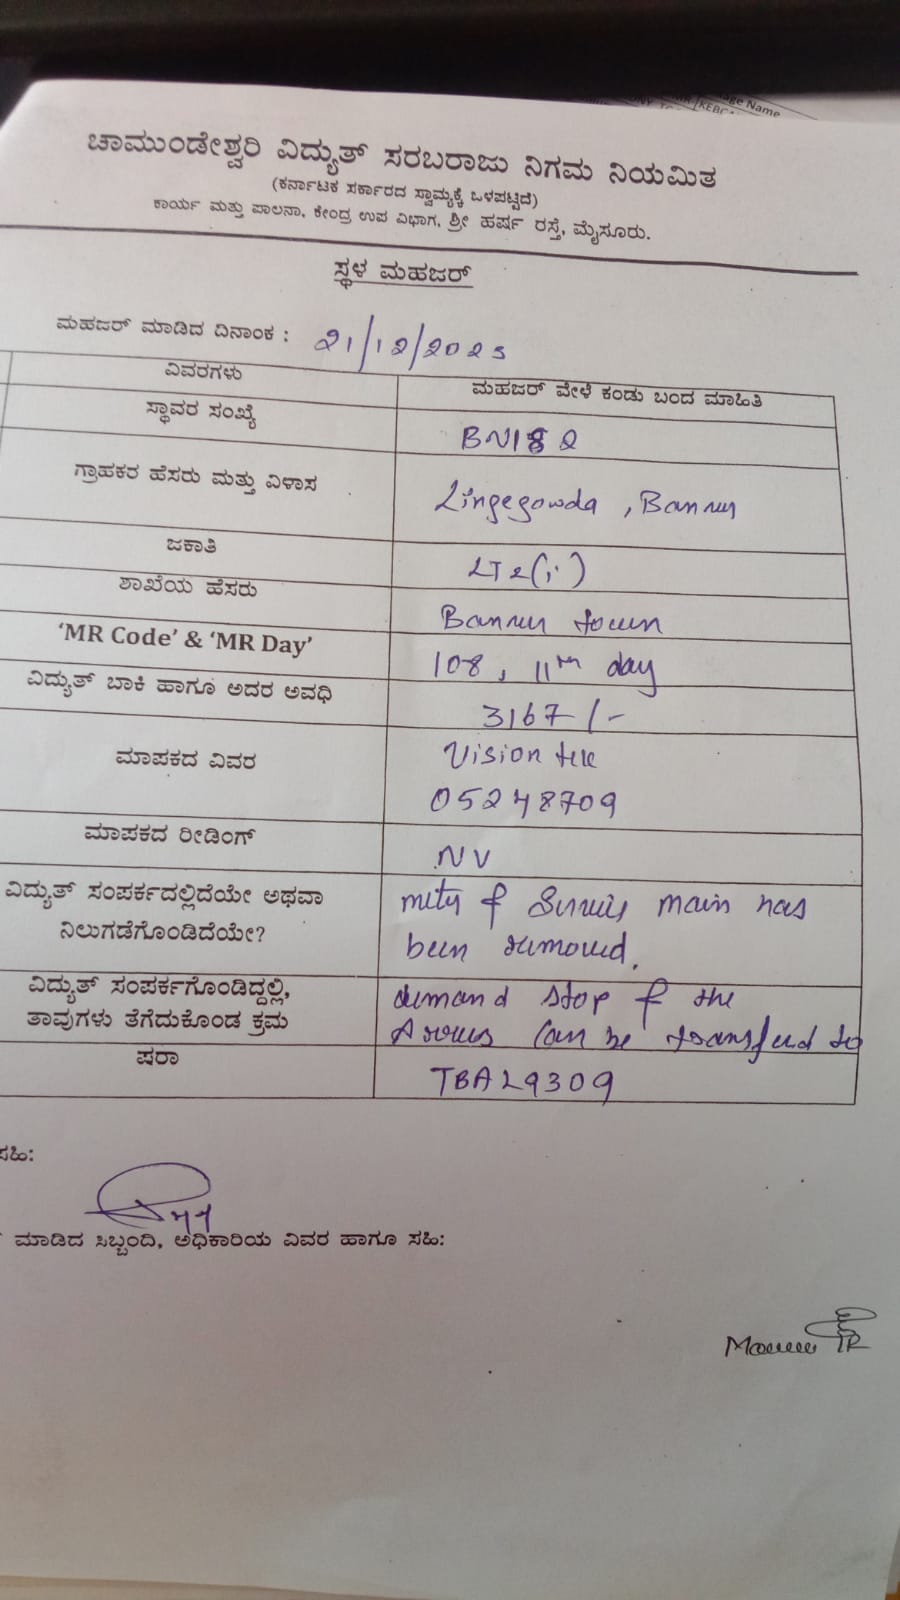 ge Name
KEBC
ಚಾಮುಂಡೇಶ್ವರಿ ವಿದ್ಯುತ್ ಸರಬರಾಜು ನಿಗಮ ನಿಯಮಿತ
(ಕರ್ನಾಟಕ ಸರ್ಕಾರದ ಸ್ವಾಮ್ಯಕ್ಕೆ ಒಳಪಟ್ಟಿದೆ)
ಕಾರ್ಯ ಮತ್ತು ಪಾಲನಾ, ಕೇಂದ್ರ ಉಪ ವಿಭಾಗ, ಶ್ರೀ ಹರ್ಷ ರಸ್ತೆ, ಮೈಸೂರು.
ಸ್ಥಳ ಮಹಜರ್
ಮಹಜರ್ ಮಾಡಿದ ದಿನಾಂಕ : 21/12/2025
ವಿವರಗಳು ಮಹಜರ್ ವೇಳೆ ಕಂಡು ಬಂದ ಮಾಹಿತಿ
ಸ್ಥಾವರ ಸಂಖ್ಯೆ BN182
ಗ್ರಾಹಕರ ಹೆಸರು ಮತ್ತು ವಿಳಾಸ Lingegowda , Bannur
ಜಕಾತಿ LT2(i)
ಶಾಖೆಯ ಹೆಸರು Bannur town
'MR Code' & 'MR Day' 108, 11th day
ವಿದ್ಯುತ್ ಬಾಕಿ ಹಾಗೂ ಅದರ ಅವಧಿ 3167/-
ಮಾಪಕದ ವಿವರ Vision tek
05248709
ಮಾಪಕದ ರೀಡಿಂಗ್ NV
ವಿದ್ಯುತ್ ಸಂಪರ್ಕದಲ್ಲಿದೆಯೇ ಅಥವಾ meter & Servis main has
ನಿಲುಗಡೆಗೊಂಡಿದೆಯೇ? been removed.
ವಿದ್ಯುತ್ ಸಂಪರ್ಕಗೊಂಡಿದ್ದಲ್ಲಿ, demand stop & the
ತಾವುಗಳು ತೆಗೆದುಕೊಂಡ ಕ್ರಮ Can be to
ಷರಾ TBAL9309
ಸಹಿ:
ಮಾಡಿದ ಸಿಬ್ಬಂದಿ, ಅಧಿಕಾರಿಯ ವಿವರ ಹಾಗೂ ಸಹಿ: